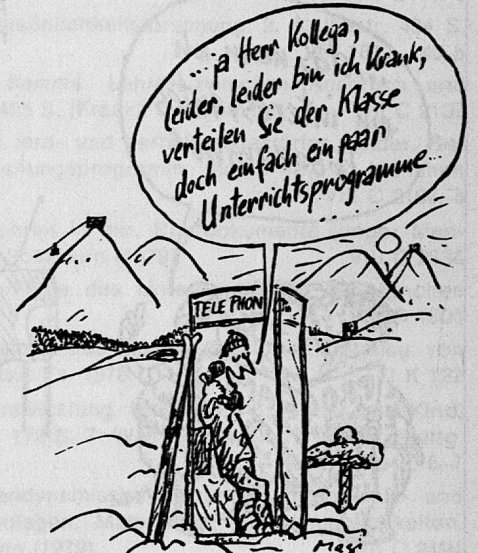 ...ja Herr Kollega,
leider, leider bin ich krank,
verteilen Sie der Klasse
doch einfach ein paar
Unterrichtsprogramme...
TELEPHON
Magi